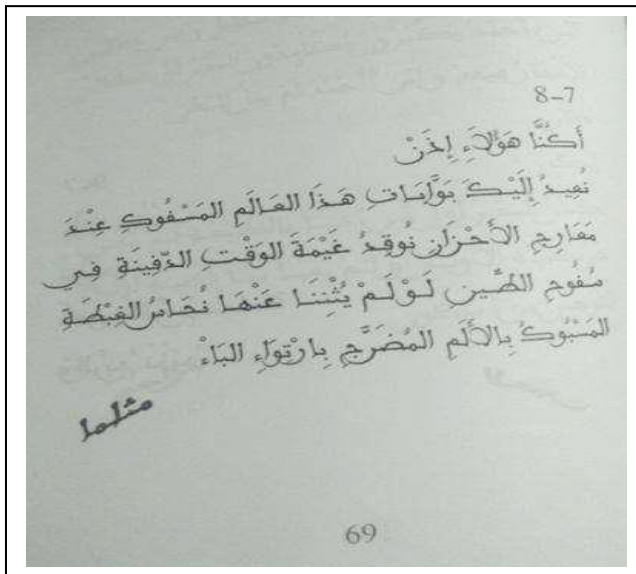 8-7
أَكُنَّا هَؤُلَاءِ إِذَنْ
نُعِيدُ إِلَيْكَ بَوَّابَاتِ هَذَا العَالَمِ المَسْفُوكِ عِنْدَ
مَعَارِجِ الأَحْزَانِ نُوقِدُ غَيْمَةَ الوَقْتِ الدَّفِينَةِ فِي
سُفُوحِ الطِّينِ لَوْ لَمْ يُثْنِنَا عَنْهَا نُحَاسُ الغِبْطَةِ
المَسْبُوكُ بِالأَلَمِ المُضَرَّجِ بِارْتِوَاءِ البَاءْ
مثلما
69